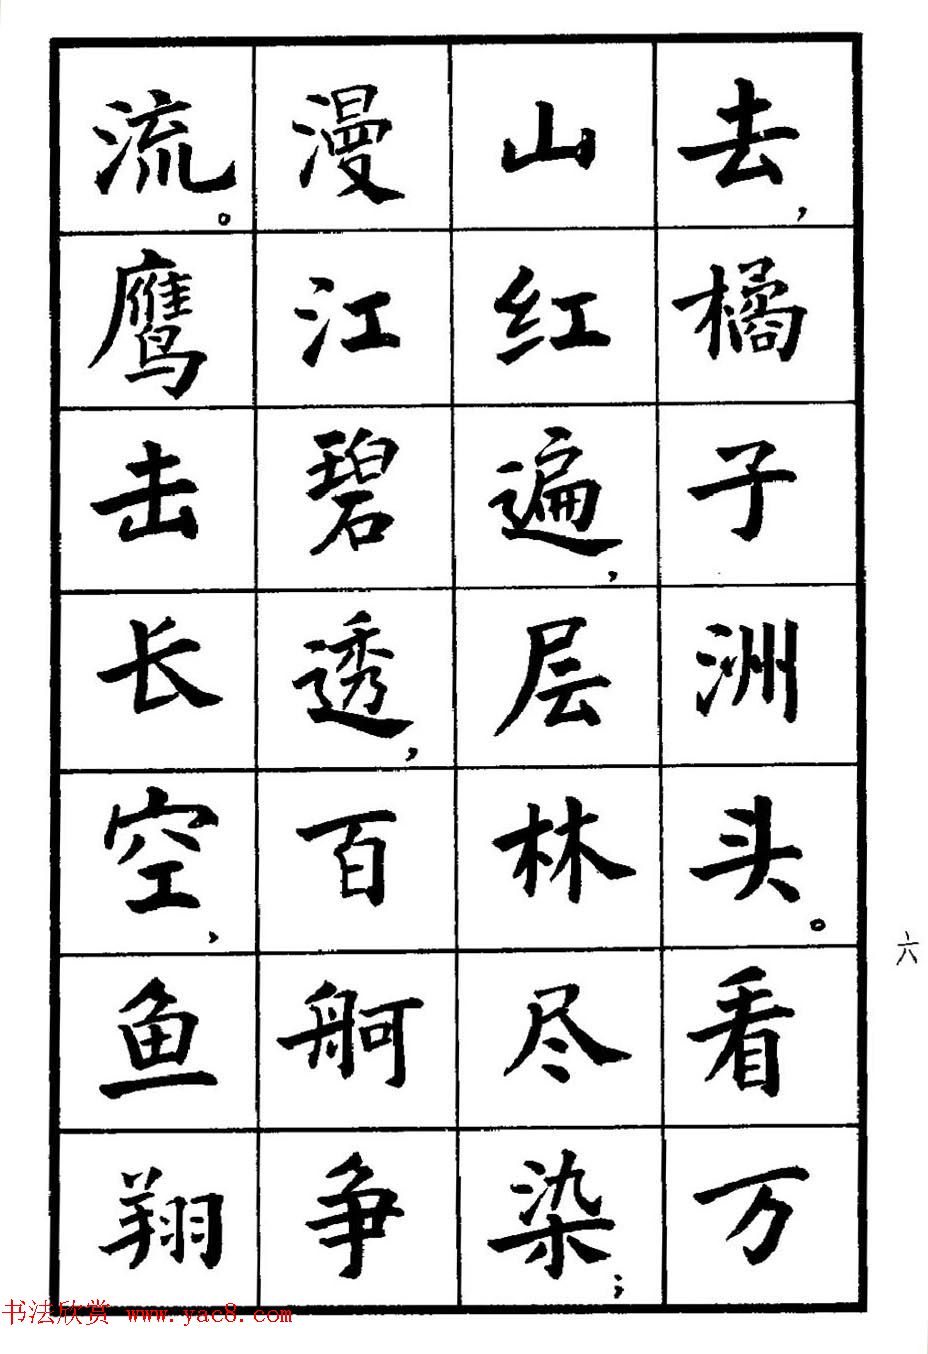 去，橘子洲头。看万
山红遍，层林尽染；
漫江碧透，百舸争
流。鹰击长空，鱼翔
六
书法欣赏 www.yac8.com